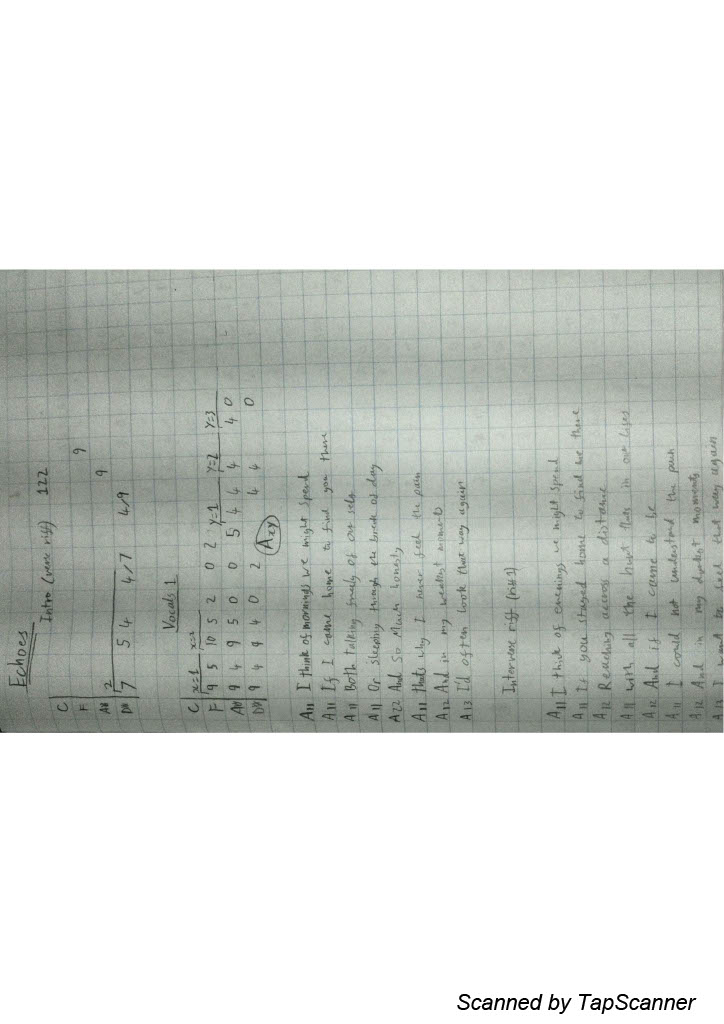 Echoes
Intro (verse riff) 122
C
F 9
A# 2 9
D# 7 5 4 4/7 4/9
Vocals 1
C x=1 x=2 Y=1 Y=2 Y=3
F 9 5 10 5 2 0 2
A# 9 4 9 5 0 0 5 4 4 4 4 0
D# 9 4 9 4 0 2 4 4 0
Axy
A11 I think of mornings we might spend
A11 If I came home to find you there
A11 Both talking freely of our selfs
A11 Or sleeping through the break of day
A22 And so much honesty
A11 thats why I never feel the pain
A12 And in my weakest moments
A13 I'd often look that way again
Interverse riff (riff 1)
A11 I think of evenings we might spend
A11 If you stayed home to find me there
A12 Reaching across a distance
A11 with all the hurt that's in our lifes
A12 And if I came to be
A11 I could not understand the pain
A12 And in my darkest moments
A13 I way again
Scanned by TapScanner